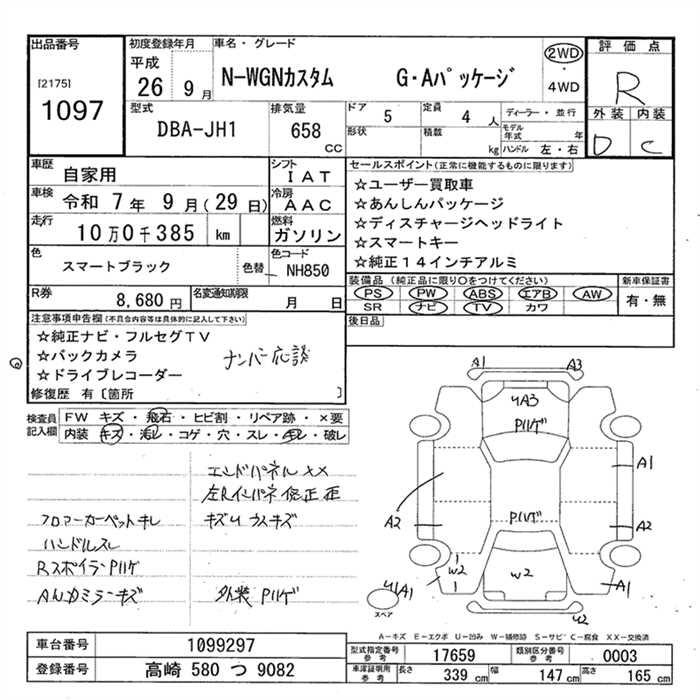 出品番号
[2175]
1097
初度登録年月
平成
26 9月
車名・グレード
N-WGNカスタム G・Aパッケージ
2WD
・
4WD
評価点
R
外装 内装
D C
型式
DBA-JH1
排気量
658
CC
ドア 5
形状
定員 4 人
積載 kg
ディーラー・並行
モデル年式 年
ハンドル 左・右
車歴 自家用
車検 令和 7年 9月(29日)
走行 10万0千385 km
シフト IAT
冷房 AAC
燃料 ガソリン
色 スマートブラック 色替
色コード NH850
R券 8,680円
名変通知期限 月 日
セールスポイント(正常に機能するものに限ります)
☆ユーザー買取車
☆あんしんパッケージ
☆ディスチャージヘッドライト
☆スマートキー
☆純正14インチアルミ
装備品(純正品に限り〇をつけてください)
PS PW ABS エアB AW
SR ナビ TV カワ
新車保証書
有・無
後日品
注意事項申告欄(不具合内容等は具体的に記入して下さい)
☆純正ナビ・フルセグTV
☆バックカメラ
☆ドライブレコーダー
ナンバー応談
修復歴 有〔箇所 〕
検査員記入欄
FW キズ・飛石・ヒビ割・リペア跡・×要
内装 キズ・汚レ・コゲ・穴・スレ・キレ・破レ
エンドパネルXX
左Rインパネ修正歪
フロアーカーペットキレ
キズUウスキズ
ハンドルスレ
RスポイラーPハゲ
外装Pハゲ
A1
A3
UA3
Pハゲ
A1
A2
Pハゲ
A2
1
W2
1
W2
A1
UA1
U2
スペア
A-キズ E-エクボ U-凹み W-補修跡 S-サビ C-腐食 XX-交換済
車台番号 1099297
登録番号 高崎 580 つ 9082
型式指定番号 参考 17659
類別区分番号 参考 0003
車庫証明用 参考
長さ 339 cm
幅 147 cm
高さ 165 cm